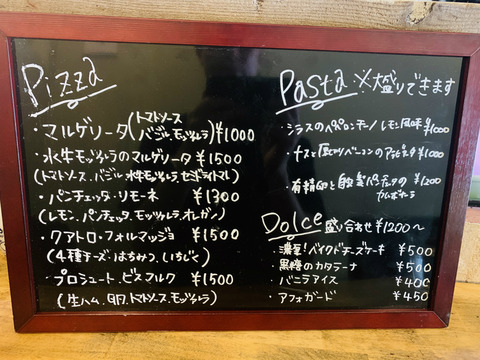 Pizza
・マルゲリータ(トマトソース バジル、モッツァレラ)¥1000
・水牛モッツァレラのマルゲリータ ¥1500
(トマトソース、バジル、水牛モッツァレラ、セミドライトマト)
・パンチェッタ・リモーネ ¥1300
(レモン、パンチェッタ、モッツァレラ、オレガノ)
・クアトロ・フォルマッジョ ¥1500
(4種チーズ・はちみつ、いちじく)
・プロシュート・ビスマルク ¥1500
(生ハム、卵、トマトソース、モッツァレラ)
Pasta ※大盛りできます
・シラスのペペロンチーノ レモン風味 ¥1000
・ナスと厚切りベーコンの ¥1000
・有精卵と自家製パンチェッタの カルボナーラ ¥1200
Dolce 盛り合わせ ¥1200〜
・濃厚!ベイクドチーズケーキ ¥500
・黒糖のカタラーナ ¥500
・バニラアイス ¥400
・アフォガード ¥450